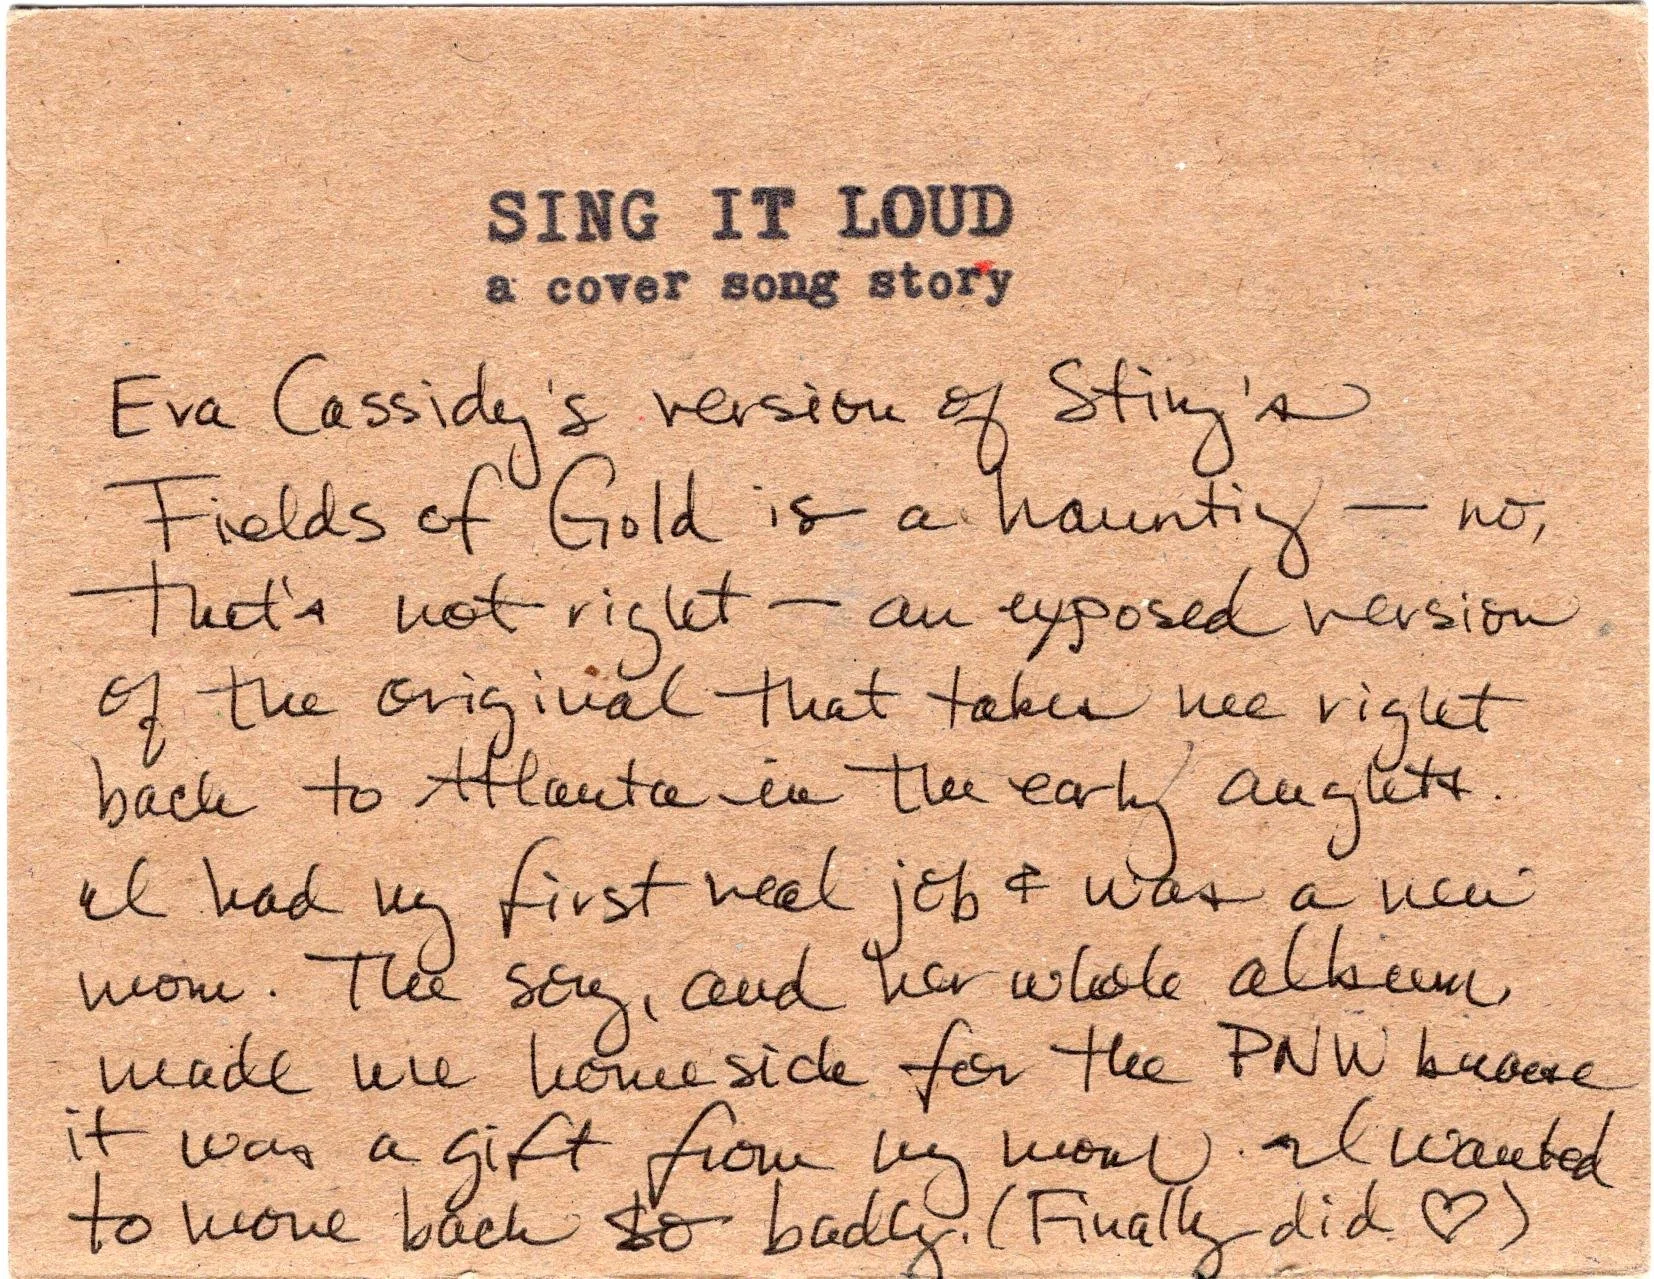 SING IT LOUD
a cover song story
Eva Cassidy's version of Sting's
Fields of Gold is a haunting — no,
that's not right — an exposed version
of the original that takes me right
back to Atlanta in the early aughts.
I had my first real job & was a new
mom. The song, and her whole album,
made me homesick for the PNW because
it was a gift from my mom. I wanted
to move back so badly. (Finally did ♡)